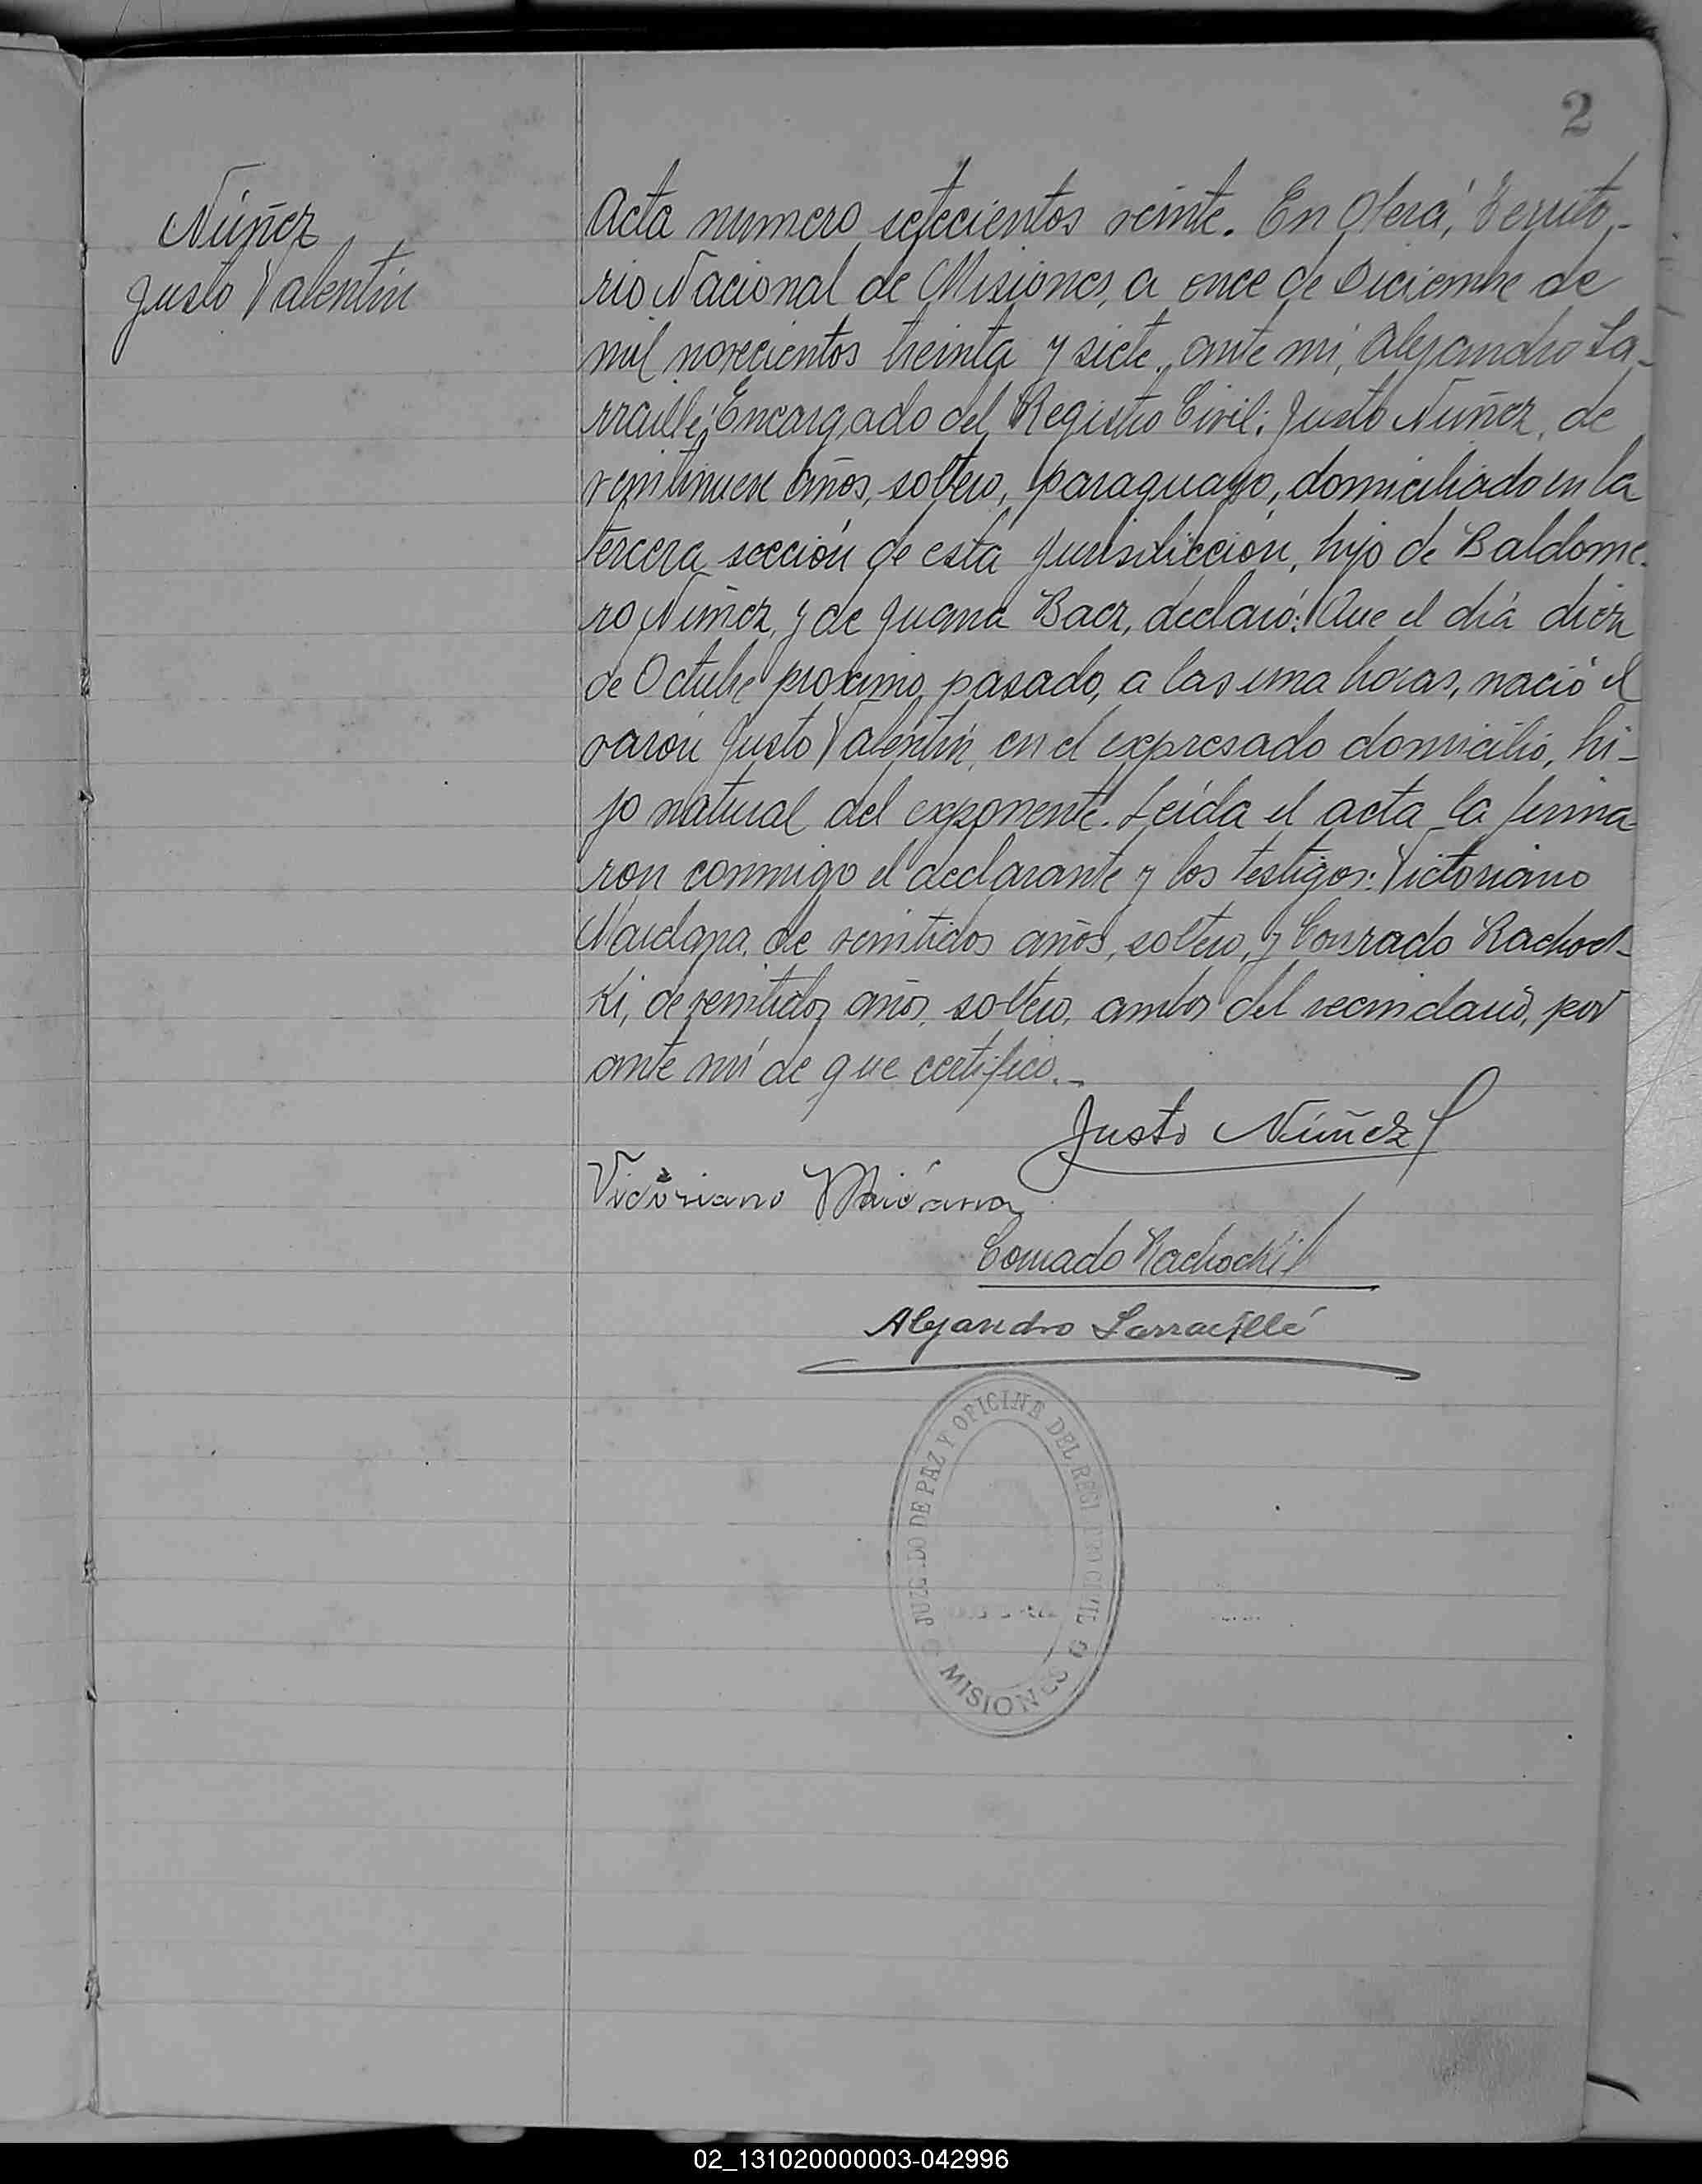 2
Núñez
Justo Valentín
Acta numero setecientos veinte. En Oberá, Territo-
rio Nacional de Misiones, a once de Diciembre de
mil novecientos treinta y siete, ante mí, Alejandro La-
rraillé, Encargado del Registro Civil: Justo Nuñez, de
veintinueve años, soltero, paraguayo, domiciliado en la
tercera sección de esta jurisdicción, hijo de Baldome-
ro Nuñez, y de Juana Baez, declaró: Que el día diez
de Octubre proximo pasado, a las una horas, nació el
varón Justo Valentín, en el expresado domicilio, hi-
jo natural del exponente. Leída el acta la firma-
ron conmigo el declarante y los testigos: Victoriano
de veintidos años, soltero, y Conrado Rachoc-
ki, de veintidos años, soltero, ambos del vecindario, por
ante mí de que certifico.-
Justo Núñez
Victoriano
Conrado Rachocki
Alejandro Larraillé
JUZGADO DE PAZ Y OFICINA DEL REGISTRO CIVIL
MISIONES
02_131020000003-042996